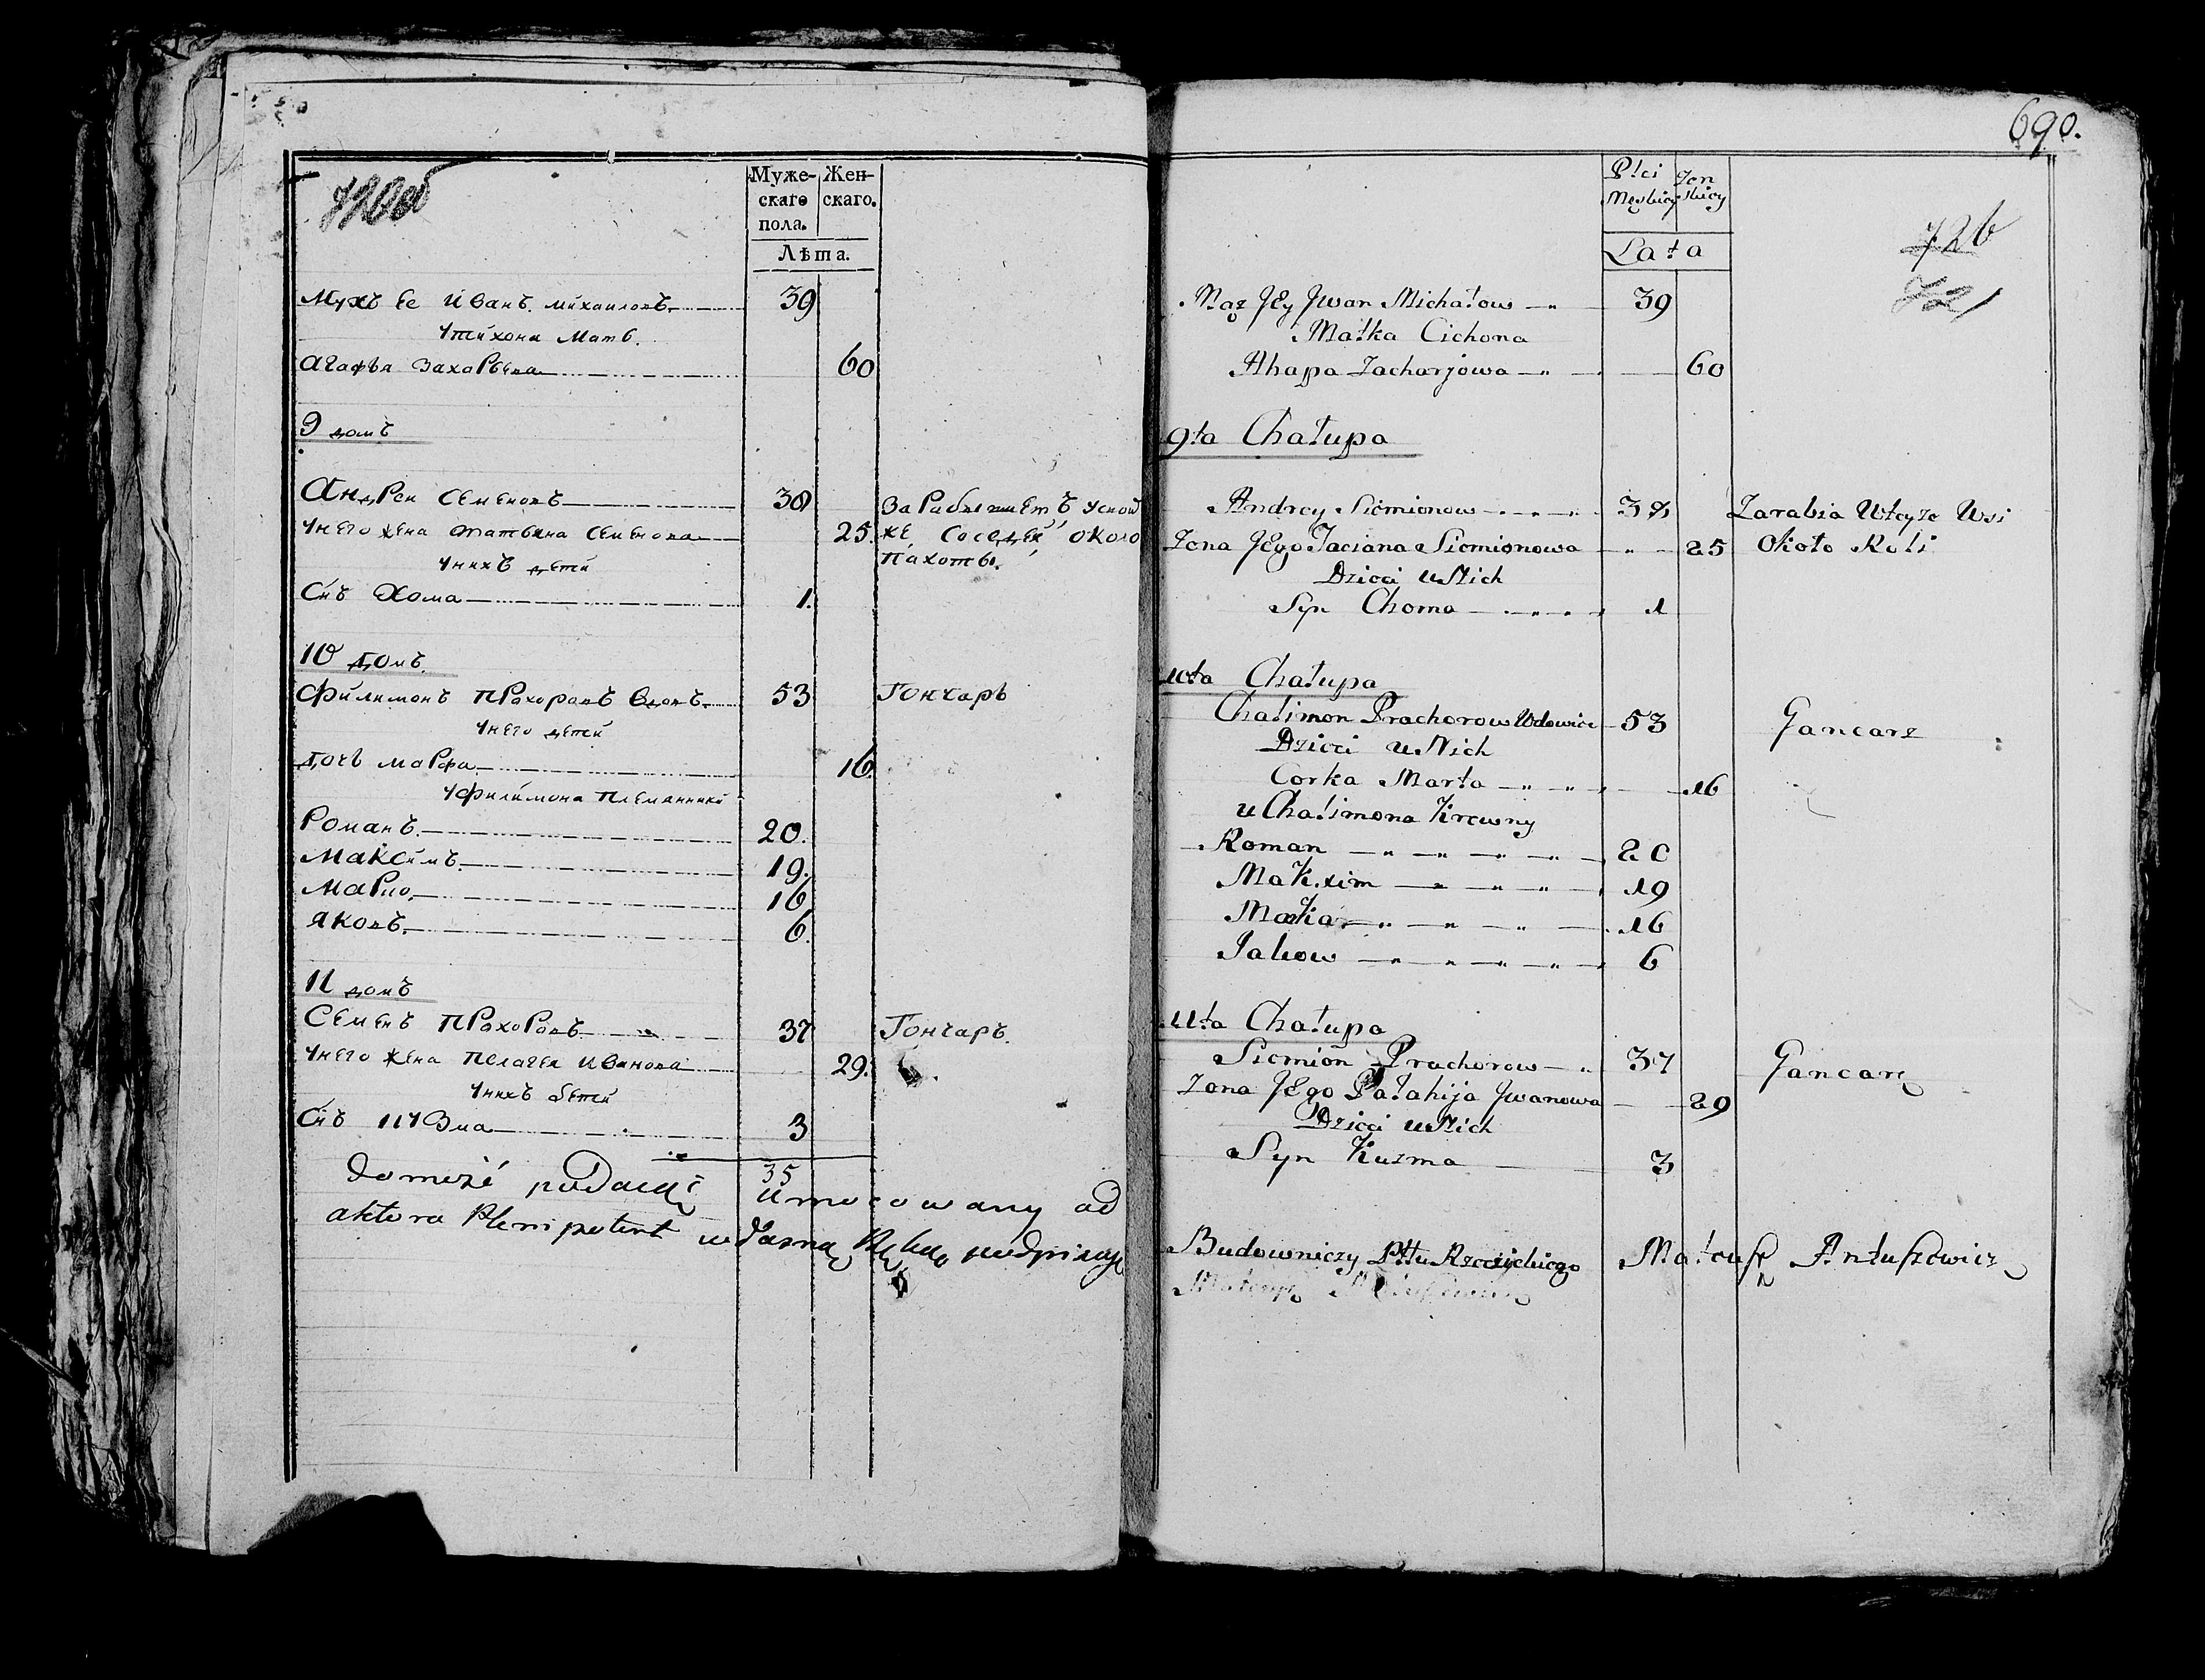 Муже-
скаго
пола.
Жен-
скаго.
Лѣта.
Мужъ ее Иванъ Михаиловъ 39
Утихона Мать
Агафья Захарьева 60
9 домъ
Андреи Семеновъ 38
Зарабляетъ у
унего жена Татьяна Семенова 25.
же соседей около
унихъ дети
пахоты.
Снъ Хома 1.
10 домъ.
Филимонъ Прохоровъ вдовъ 53
Гончаръ
унего детей
дочь Марфа 16.
уФилимона племянники
Романъ. 20.
Максимъ. 19.
16
Яковъ. 6.
11 домъ
Семенъ Прохоровъ 37
Гончаръ.
унего жена Пелагея Иванова 29.
унихъ дети
Снъ 3
35
umocowany od
aktora Plenipotent własną Ręką podpisuję
690.
Płci
Męskiey
Zen
skiey
Lata
726
721
Mąz Jey Jwan Michałow 39
Matka Cichona
Ahapa Zacharjowa 60
9ta Chałupa
Andrey Siemionow 38 Zarabia Wteyze Wsi
Zona Jego Taciana Siemionowa 25 Około Roli
Dzieci u Nich
Syn Choma 1
10ta Chałupa
Chalimon Prachorow Wdowiec 53 Gancarz
Dzieci u Nich
Corka Marta 16
u Chalimona Krewny
Roman 20
Makxim 19
Makar 16
Jakow 6
11ta Chałupa
Siemion Prachorow 37 Gancarz
Zona Jego Pałahija Jwanowa 29
Dzieci u Nich
Syn Kuzma 3
Budowniczy Pttu Rzeczyckiego Mateusz Antuszewicz